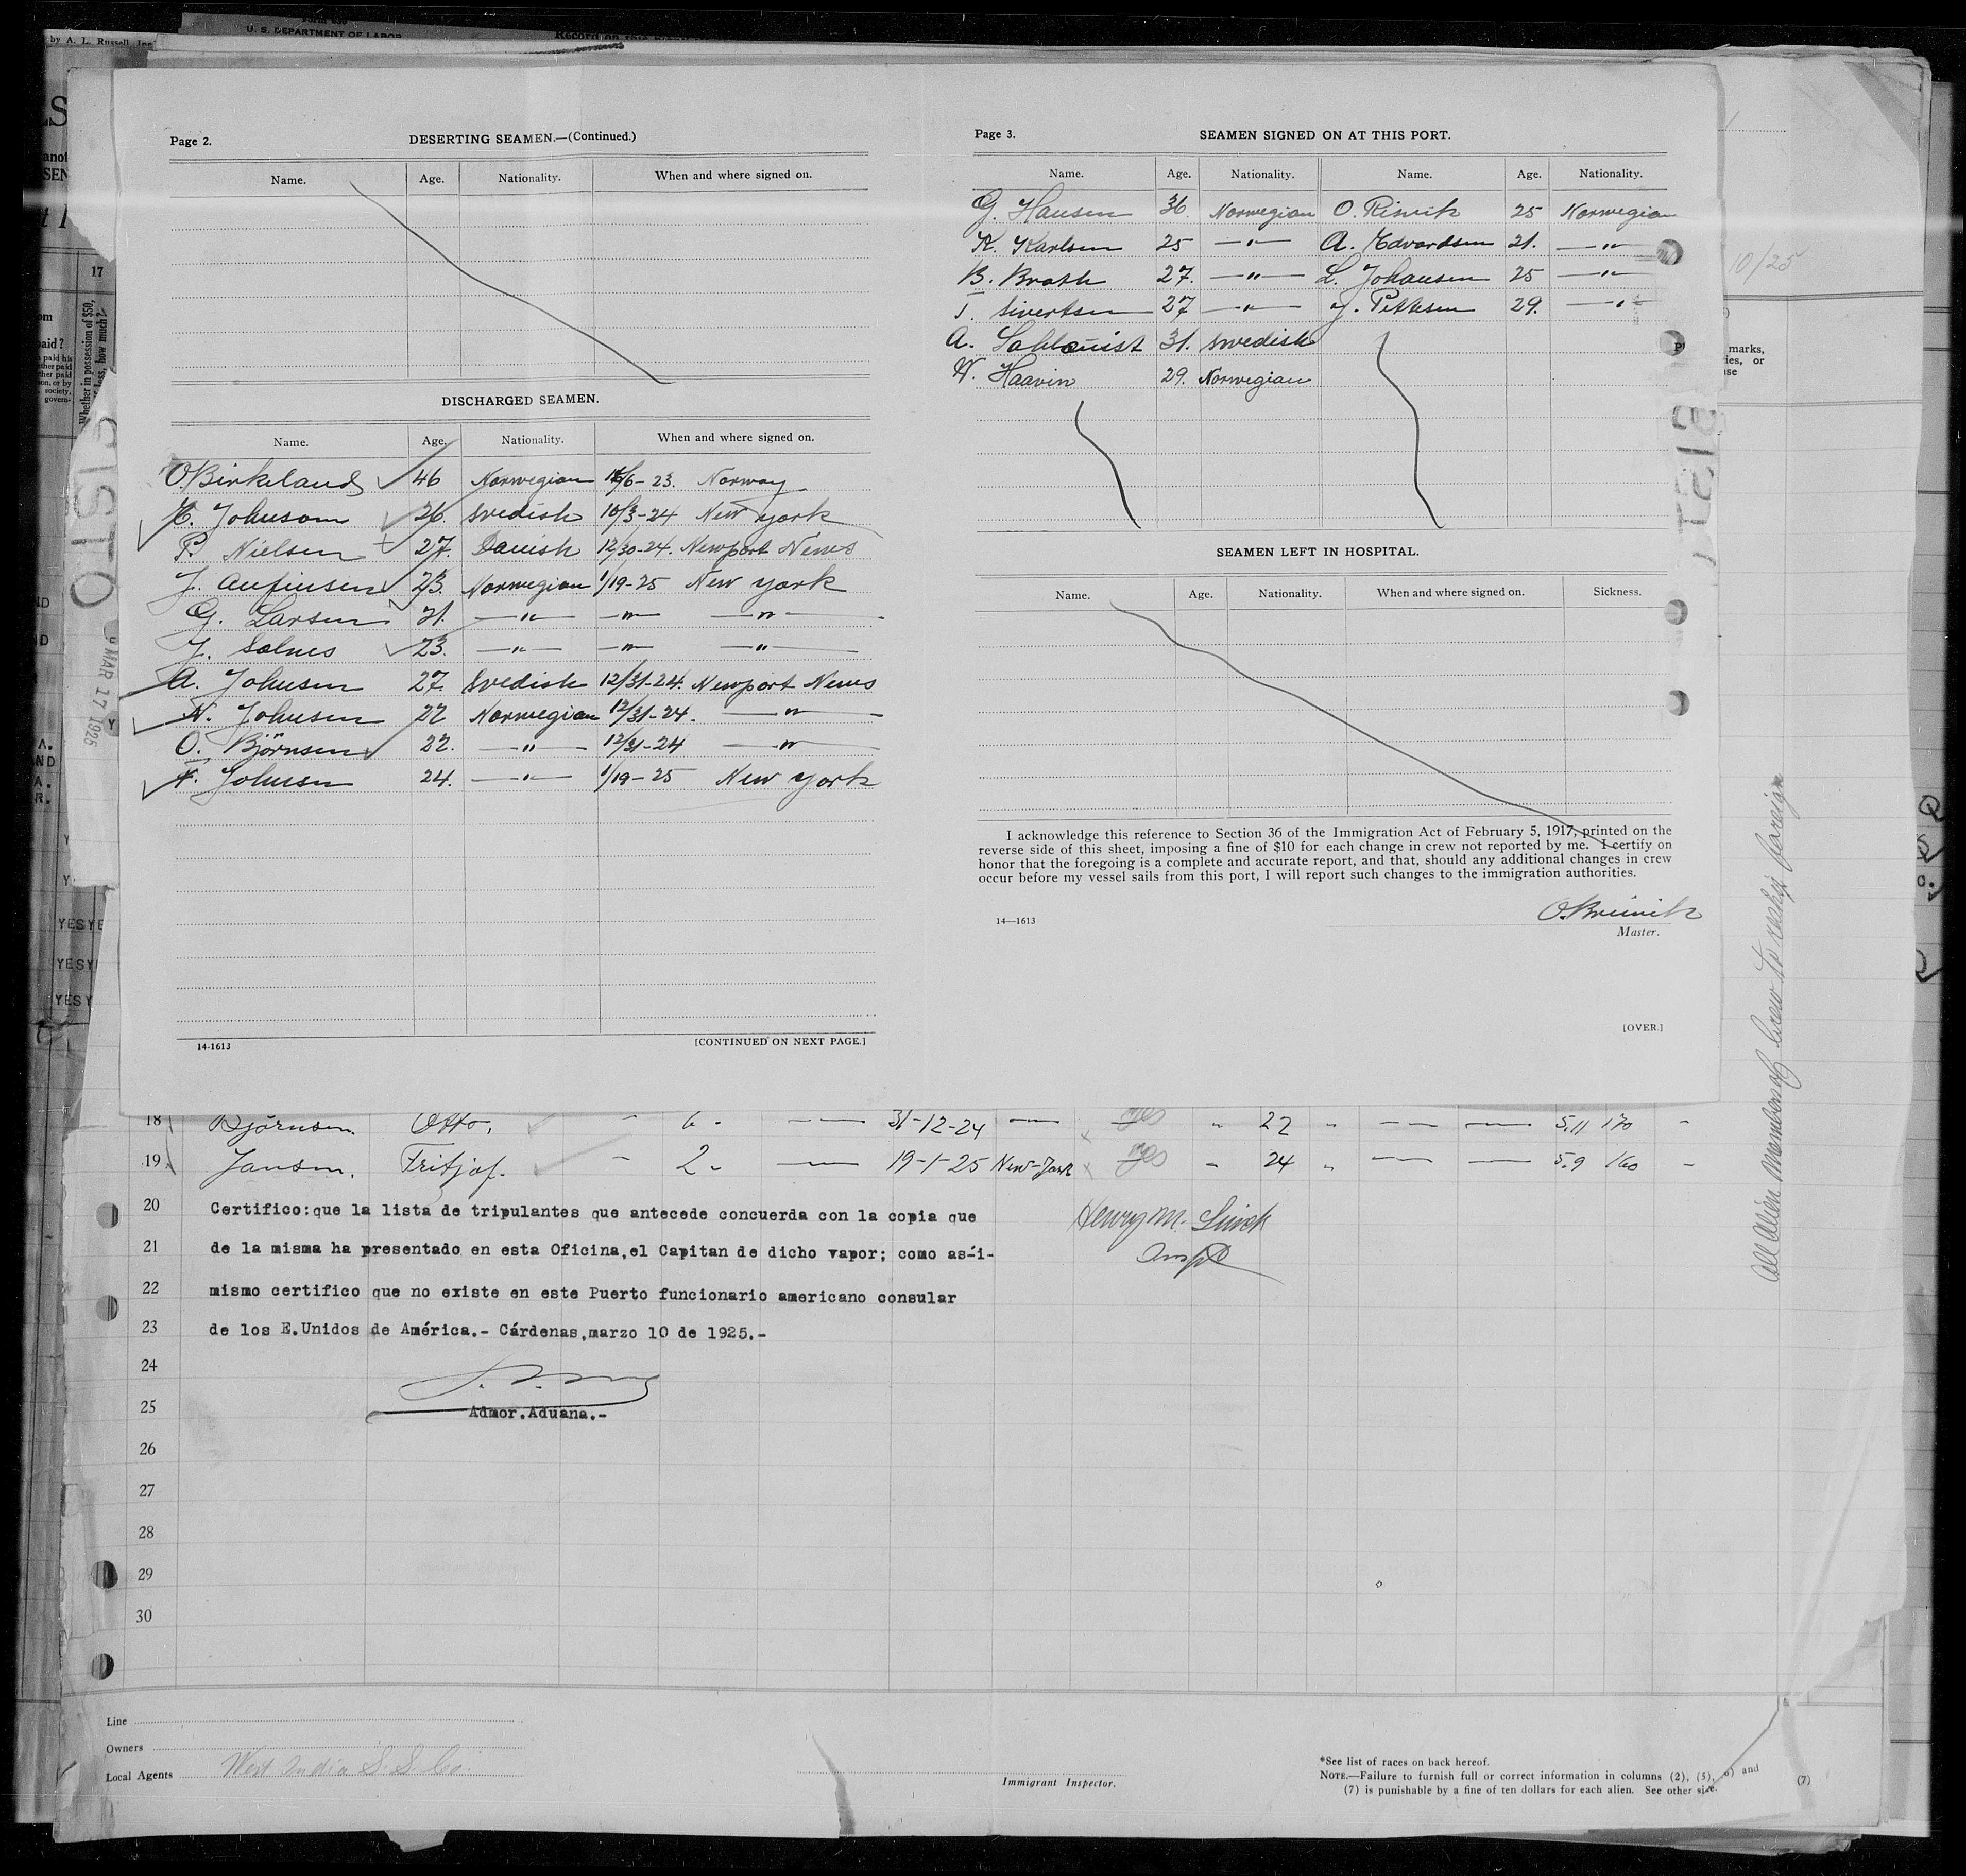 by A. L. Russell, Inc.
U. S. DEPARTMENT OF LABOR
Page 2.
DESERTING SEAMEN.—(Continued.)
Name. Age. Nationality. When and where signed on.
DISCHARGED SEAMEN.
Name. Age. Nationality. When and where signed on.
O. Birkeland 46 Norwegian 16/6-23. Norway
Johnson 26. Swedish 10/3-24 New York
P. Nielsen 27. Danish 12/30-24. Newport News
J. Aufinsen 23. Norwegian 1/19-25 New York
G. Larsen 21. —"— —"— —"—
J. Solnes 23. —"— —"— —"—
A. Johnsen 27. Swedish 12/31-24. Newport News
N. Johnsen 22 Norwegian 12/31-24. —"—
O. Björnsen 22. —"— 12/31-24 —"—
F. Johnsen 24. —"— 1/19-25 New York
14-1613
[CONTINUED ON NEXT PAGE.]
Page 3.
SEAMEN SIGNED ON AT THIS PORT.
Name. Age. Nationality. Name. Age. Nationality.
G. Hansen 36. Norwegian O. Risvik 25 Norwegian
K. Karlsen 25 —"— A. Edvardsen 21. —"—
B. Brath 27. —"— L. Johansen 25 —"—
T. Sivertsen 27 —"— J. Pettersen 29. —"—
A. 31. Swedish
Haavin 29. Norwegian
SEAMEN LEFT IN HOSPITAL.
Name. Age. Nationality. When and where signed on. Sickness.
I acknowledge this reference to Section 36 of the Immigration Act of February 5, 1917, printed on the
reverse side of this sheet, imposing a fine of $10 for each change in crew not reported by me. I certify on
honor that the foregoing is a complete and accurate report, and that, should any additional changes in crew
occur before my vessel sails from this port, I will report such changes to the immigration authorities.
14—1613
Master.
[OVER.]
MAR 17 1925
10/25
marks,
ies, or
17
Whether in possession of $50,
less, how much?
All Alien Members of Crew to reship foreign
18 Björnsen. Otto, - 6 - — 31-12-24 — yes " 22 " — — 5.11 170 -
19 Jansen. Fritjof. - 2 - — 19-1-25 New-York yes - 24 " — — 5.9 160 -
20 Certifico:que la lista de tripulantes que antecede concuerda con la copia que
Henry M.
21 de la misma ha presentado en esta Oficina,el Capitan de dicho vapor; como as-i-
22 mismo certifico que no existe en este Puerto funcionario americano consular
23 de los E.Unidos de América.- Cárdenas,marzo 10 de 1925.-
24
25 Admor.Aduana.-
26
27
28
29
30
Line
Owners
Local Agents West India S. S. Co.
Immigrant Inspector.
*See list of races on back hereof.
NOTE.—Failure to furnish full or correct information in columns (2), (5), (6) and
(7) is punishable by a fine of ten dollars for each alien. See other side.
(7)